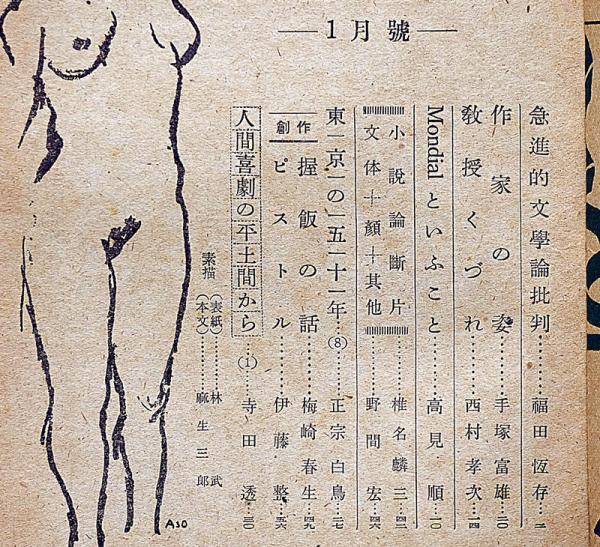 1月號
急進的文學論批判……福田恆存
作家の姿……手塚富雄
教授くづれ……西村孝次
Mondialといふこと……高見順
小說論斷片……椎名麟三
文体十顏十其他……野間宏
東京の五十年……⑧……正宗白鳥
創作
握飯の話……梅崎春生
ピストル……伊藤整
人間喜劇の平土間から……①……寺田透
素描
(表紙)……林武
(本文)……麻生三郎
ASO